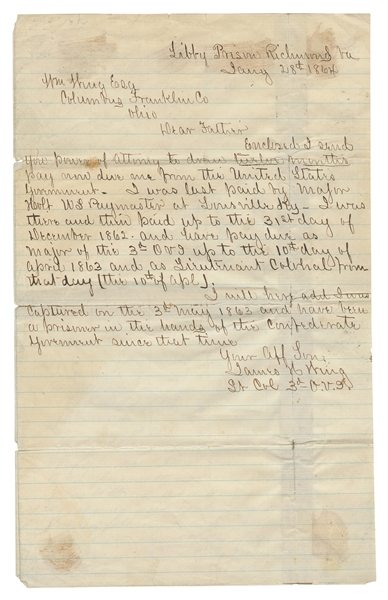 Libby Prison Richmond Va
Jany 28th 1864
Wm Wing Esq
Columbus Franklin Co
Ohio
Dear Father
Enclosed I send
you power of Attorny to draw twelve months
pay now due me from the United States
Government. I was last paid by Major
Holt U S Paymaster at Louisville Ky - I was
there and then paid up to the 31st day of
December 1862 - and have pay due as
Major of the 3d OVI up to the 10th day of
April 1863 and as Lieutenant Colonel from
that day [the 10th of Apl].
I will here add I was
captured on the 3d May 1863 and have been
a prisoner in the hands of the Confederate
Goverment since that time
Your Aff Son,
James H Wing
Lt Col 3d O.V.I.